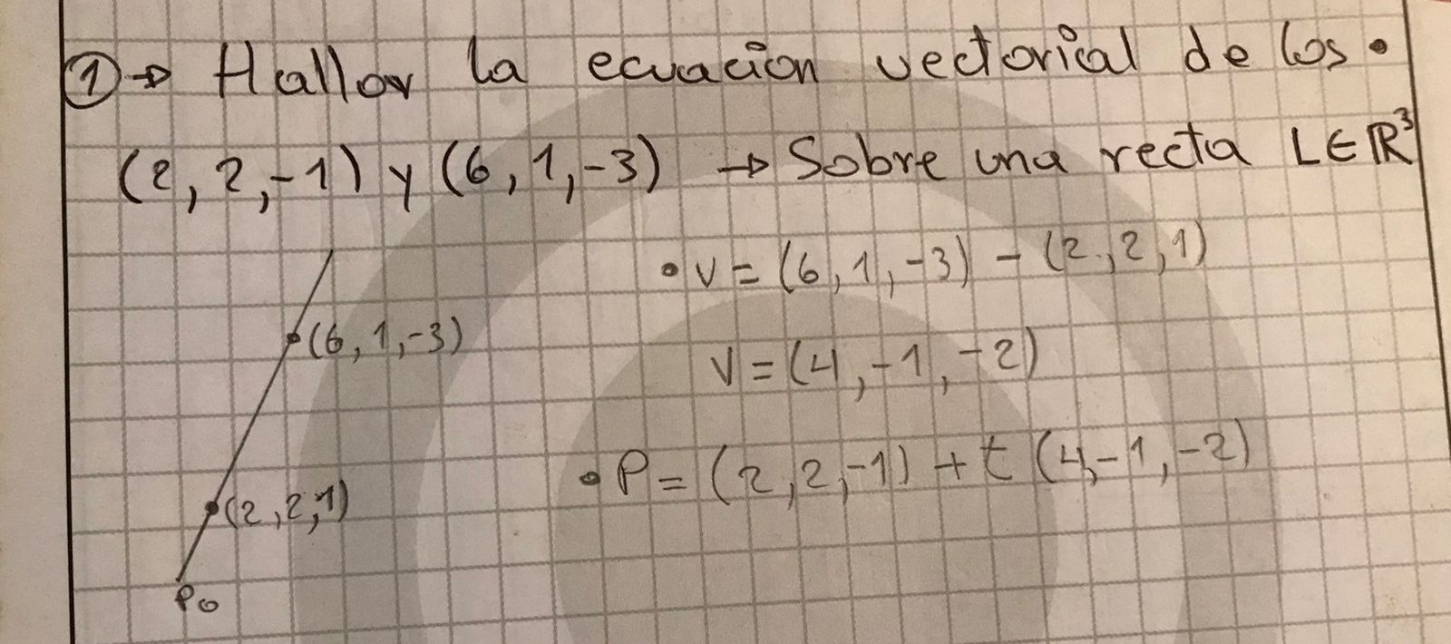 ① → Hallar la ecuación vectorial de los •
(2, 2, -1) y (6, 1, -3) → Sobre una recta L ∈ ℝ³
• v = (6, 1, -3) - (2, 2, 1)
(6, 1, -3)
v = (4, -1, -2)
• P = (2, 2, -1) + t (4, -1, -2)
(2, 2, 1)
P₀